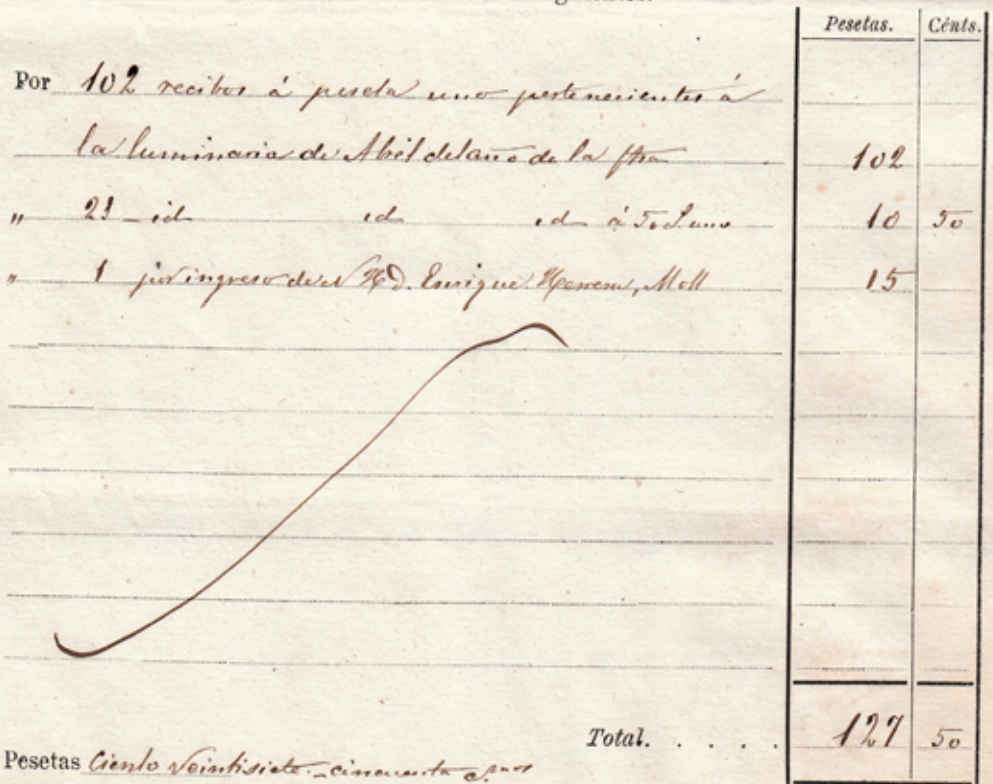 Pesetas. Cénts.
Por 102 recibos á peseta uno pertenecientes á
la luminaria de Abril del año de la fha 102
" 21 id id id á 50 c. uno 10 50
" 1 por ingreso de N H D. Enrique Herrera, Moll 15
Total. . . . . 127 50
Pesetas Ciento Veintisiete - cincuenta